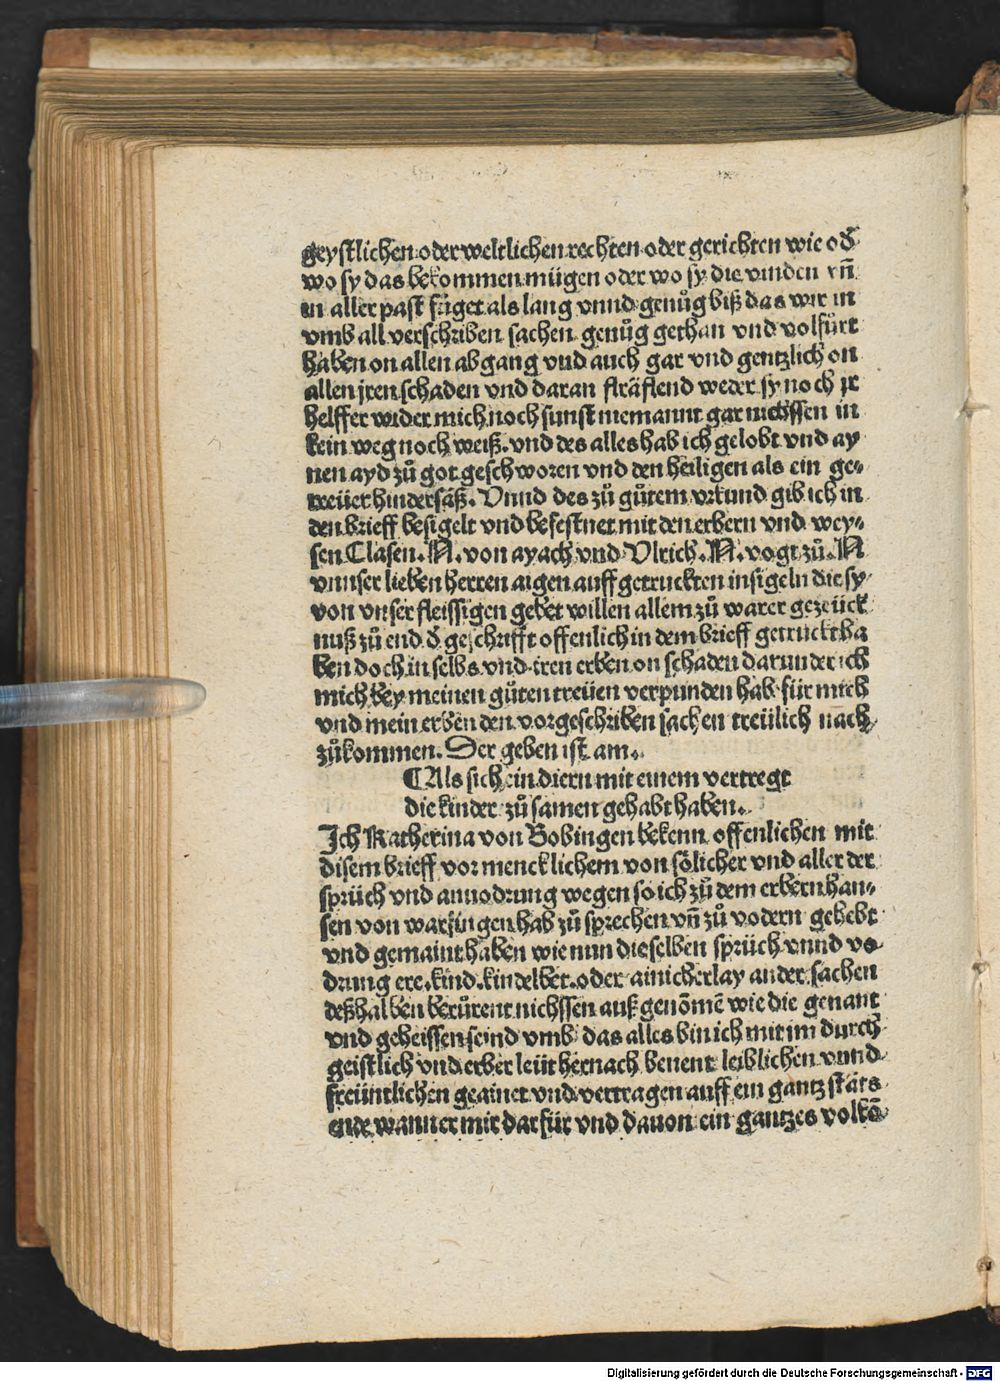 geystlichen oder weltlichen rechten oder gerichten wie od̕
wo sy das bekommen mügen oder wo sy die vinden vñ
in aller past füget als lang vnnd genůg biß das wir in
vmb all verschriben sachen genůg gethan vnd volfürt
haben on allen abgang vnd auch gar vnd gentzlich on
allen jren schaden vnd daran weder sy noch jr
helffer wider mich noch sunst niemannt gar nichssen in
kein weg noch weiß. vnd des alles hab ich gelobt vnd ay
nen ayd zů got geschworen vnd den heiligen als ein ge⸗
treüer hindersäß. Vnnd des zů gůtem vrkund gib ich in
den brieff besigelt vnd befestnet mit den erbern vnd wey⸗
sen Clasen. N. von ayach vnd Vlrich. N. vogt zů. N
vnnser lieben herren aigen auff getruckten insigeln die sy
von vnser fleissigen gebet willen allem zů warer gezeück
nuß zů end d̕ geschrifft offenlich in dem brieff getruckt ha
ben doch in selbs vnd iren erben on schaden darunder ich
mich bey meinen gůten treüen verpunden hab für mich
vnd mein erben den vorgeschriben sachen treülich nach
zůkommen. Der geben ist am.
¶Als sich ein diern mit einem vertregt
die kinder zů samen gehabt haben.
Ich Katherina von Bobingen bekenn offenlichen mit
disem brieff vor mencklichem von sölicher vnd aller der
sprüch vnd annodrung wegen so ich zů dem erbern han⸗
sen von hab zů sprechen vñ zů vodern gehebt
vnd gemaint haben wie nun dieselben sprüch vnnd vo⸗
drung ere. kind. kindelbet. oder ainicherlay ander sachen
deßhalben berürent nichssen auß genõmẽ wie die genant
vnd geheissen seind vmb das alles bin ich mit im durch
geistlich vnd erber leüt hernach benent leiblichen vnnd
freüntlichen geainet vnd vertragen auff ein gantz stäts
ende wann er mir dar für vnd dauon ein gantzes volkõ⸗
Digitalisierung gefördert durch die Deutsche Forschungsgemeinschaft - DFG